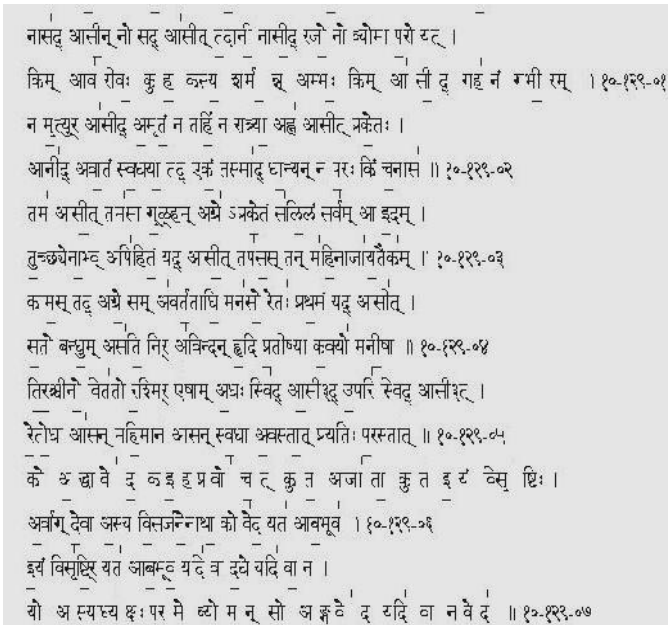 नासद् आसीन् नो सद् आसीत् तदानीं नासीद् रजो नो व्योमा परो यत् ।
किम् आवरीवः कुह कस्य शर्मन्न् अम्भः किम् आसीद् गहनं गभीरम् । १०-१२९-०१
न मृत्युर् आसीद् अमृतं न तर्हि न रात्र्या अह्न आसीत् प्रकेतः ।
आनीद् अवातं स्वधया तद् एकं तस्माद् धान्यन् न परः किं चनास ॥ १०-१२९-०२
तम आसीत् तमसा गूळ्हम् अग्रे ऽप्रकेतं सलिलं सर्वम् आ इदम् ।
तुच्छ्येनाभ्व् अपिहितं यद् आसीत् तपसस् तन् महिनाजायतैकम् । १०-१२९-०३
कामस् तद् अग्रे सम् अवर्तताधि मनसो रेतः प्रथमं यद् आसीत् ।
सतो बन्धुम् असति निर् अविन्दन् हृदि प्रतीष्या कवयो मनीषा ॥ १०-१२९-०४
तिरश्चीनो विततो रश्मिर् एषाम् अधः स्विद् आसी३द् उपरि स्विद् आसी३त् ।
रेतोधा आसन् महिमान आसन् स्वधा अवस्तात् प्रयतिः परस्तात् ॥ १०-१२९-०५
को अद्धा वेद क इह प्र वोचत् कुत आजाता कुत इयं विसृष्टिः ।
अर्वाग् देवा अस्य विसर्जनेनाथा को वेद यत आबभूव । १०-१२९-०६
इयं विसृष्टिर् यत आबभूव यदि वा दधे यदि वा न ।
यो अस्याध्यक्षः परमे व्योमन् सो अङ्ग वेद यदि वा न वेद ॥ १०-१२९-०७